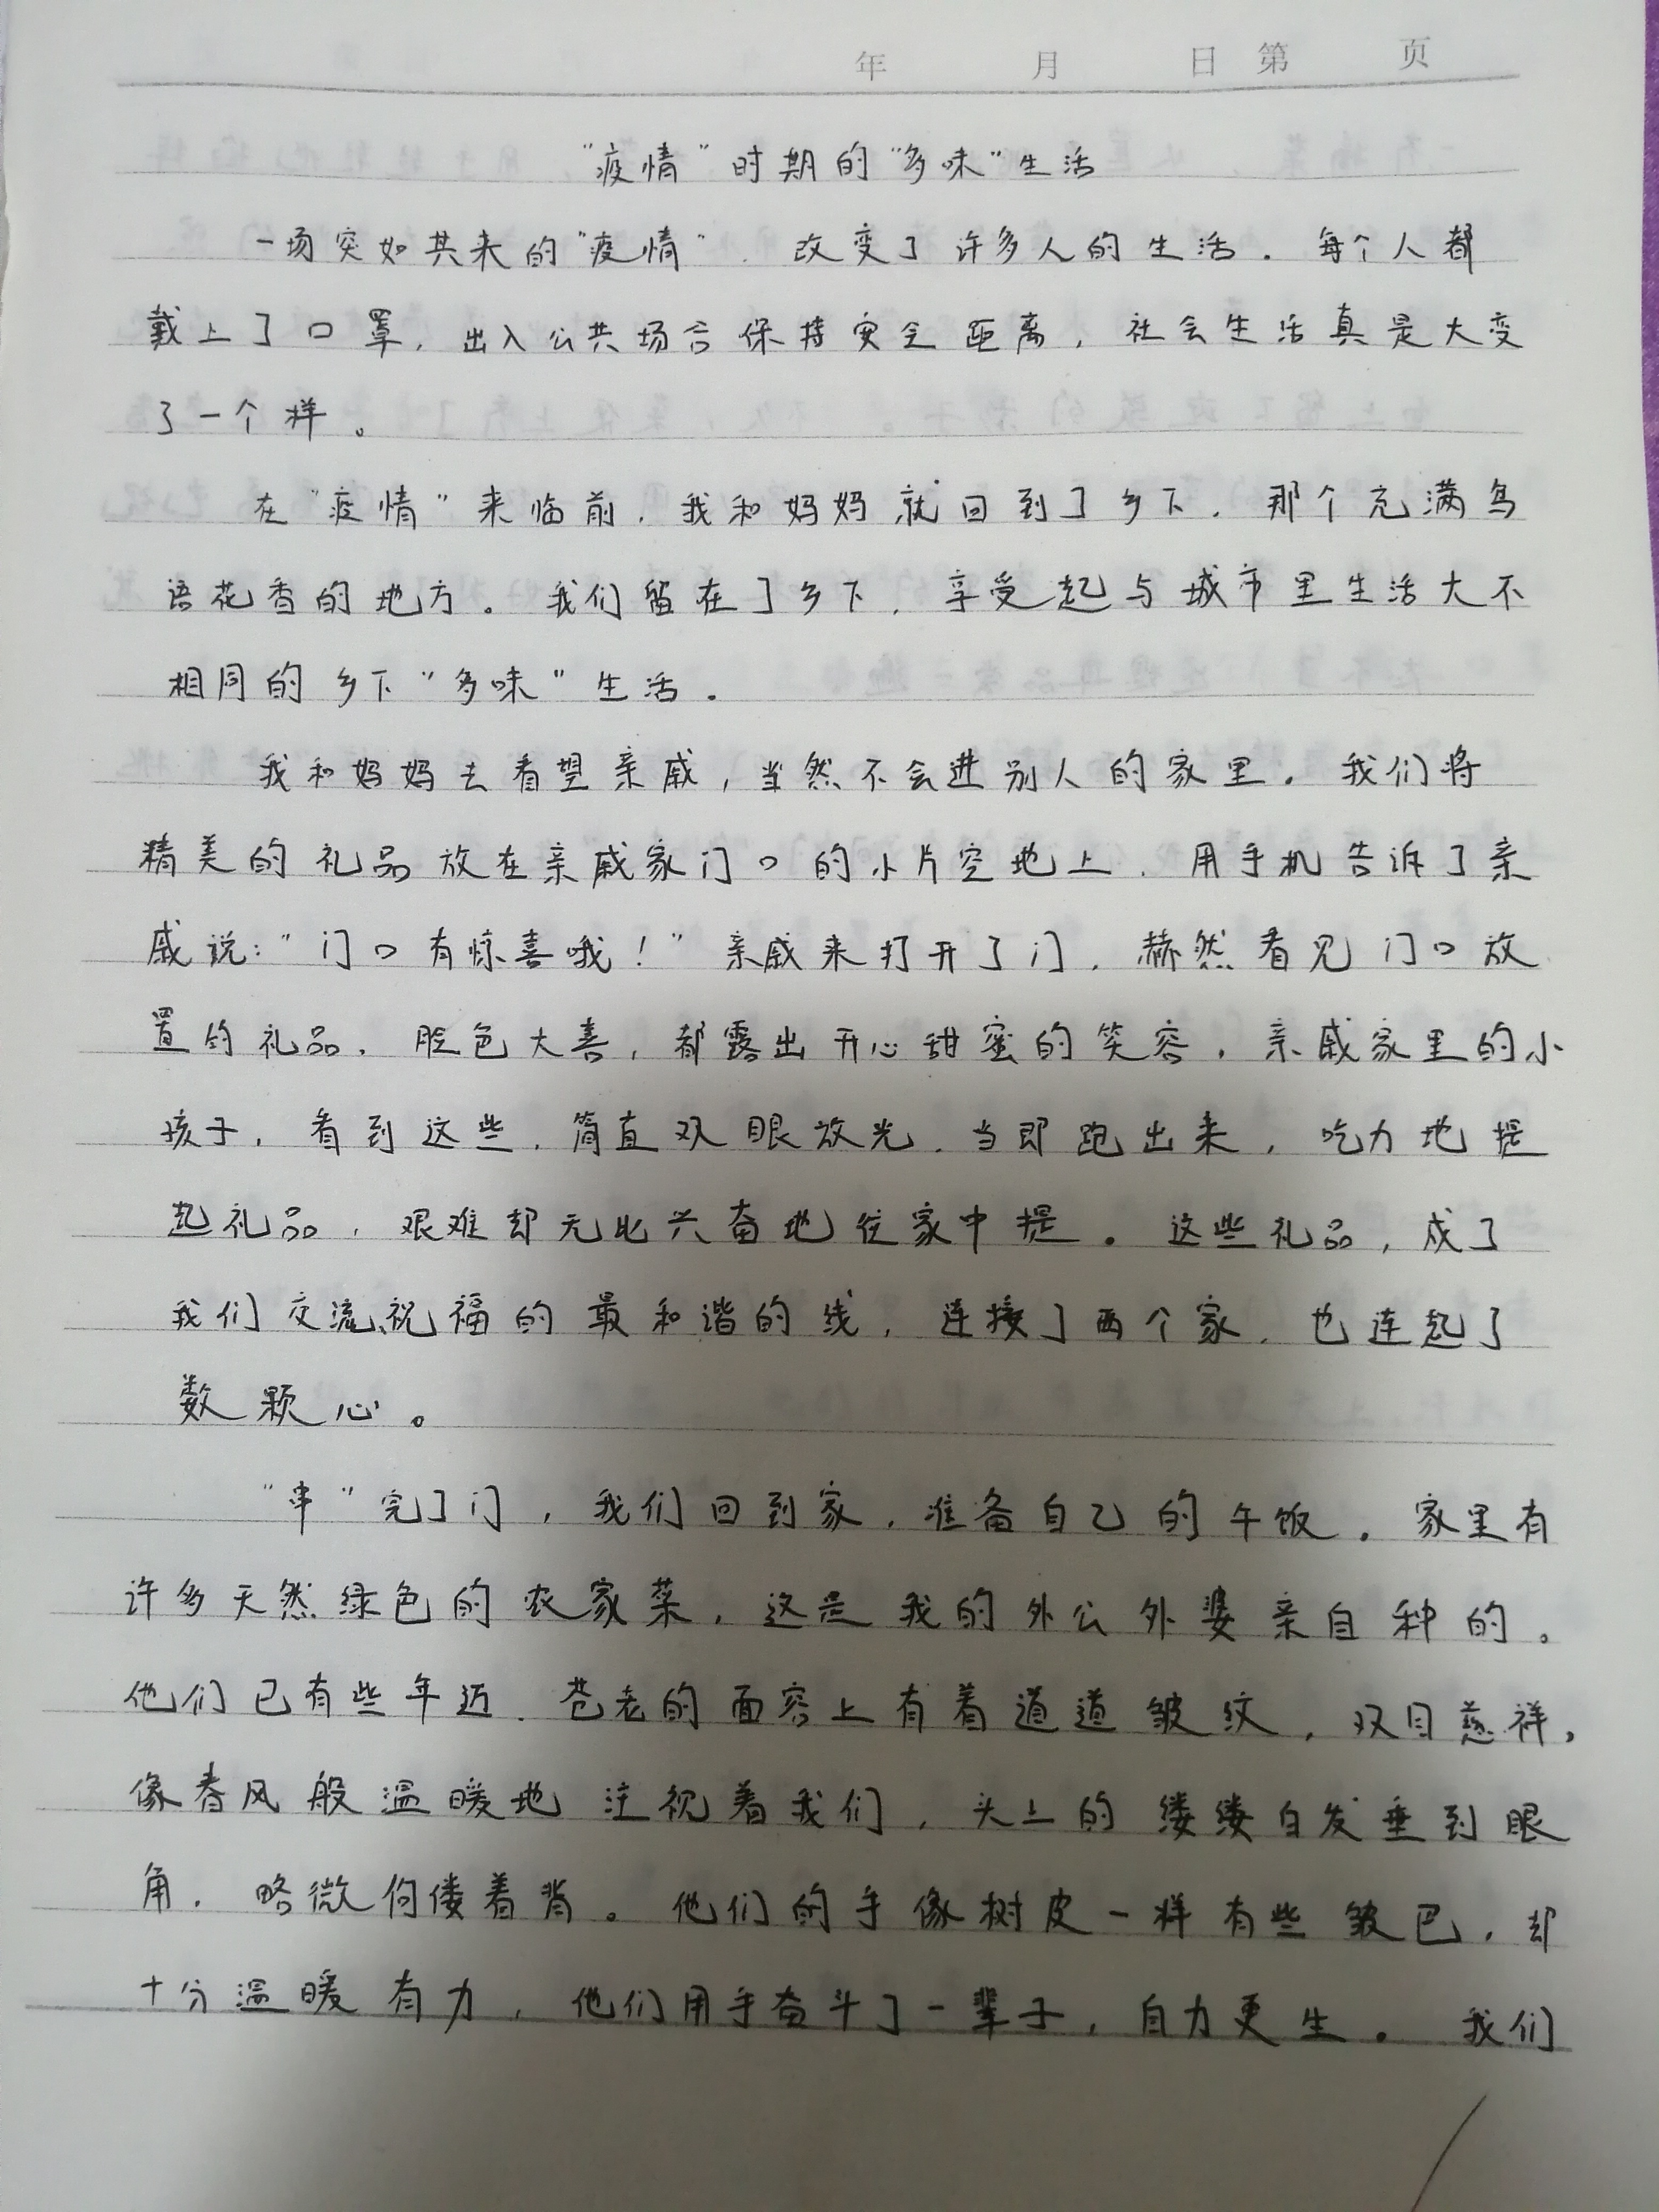 年 月 日 第 页
“疫情”时期的“多味”生活
一场突如其来的“疫情”，改变了许多人的生活。每个人都
戴上了口罩，出入公共场合保持安全距离，社会生活真是大变
了一个样。
在“疫情”来临前，我和妈妈就回到了乡下，那个充满鸟
语花香的地方。我们留在了乡下，享受起与城市里生活大不
相同的乡下“多味”生活。
我和妈妈去看望亲戚，当然不会进别人的家里。我们将
精美的礼品放在亲戚家门口的小片空地上，用手机告诉了亲
戚说：“门口有惊喜哦！”亲戚来打开了门，赫然看见门口放
置的礼品，脸色大喜，都露出开心甜蜜的笑容。亲戚家里的小
孩子，看到这些，简直双眼放光，当即跑出来，吃力地提
起礼品，艰难却无比兴奋地往家中提。这些礼品，成了
我们交流、祝福的最和谐的线，连接了两个家，也连起了
数颗心。
“串”完了门，我们回到家，准备自己的午饭。家里有
许多天然绿色的农家菜，这是我的外公外婆亲自种的。
他们已有些年迈，苍老的面容上有着道道皱纹，双目慈祥，
像春风般温暖地注视着我们，头上的缕缕白发垂到眼
角，略微佝偻着背。他们的手像树皮一样有些皱巴，却
十分温暖有力，他们用手奋斗了一辈子，自力更生。我们